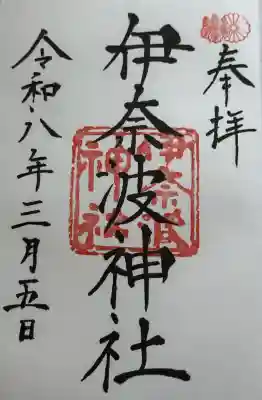 奉拝
伊奈波神社
伊奈波神社
令和八年三月五日